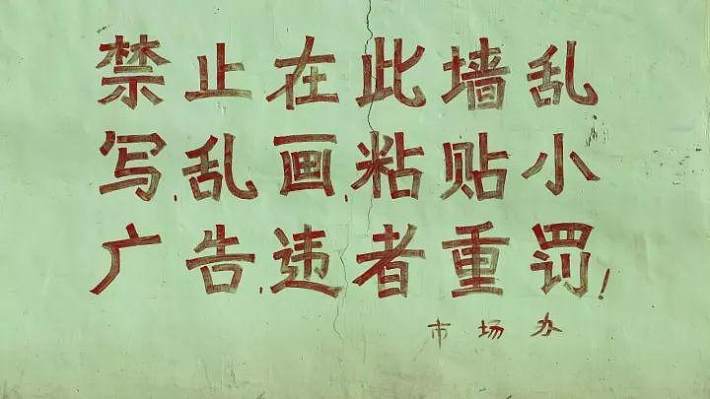 禁止在此墙乱
写、乱画、粘贴小
广告、违者重罚!
市场办